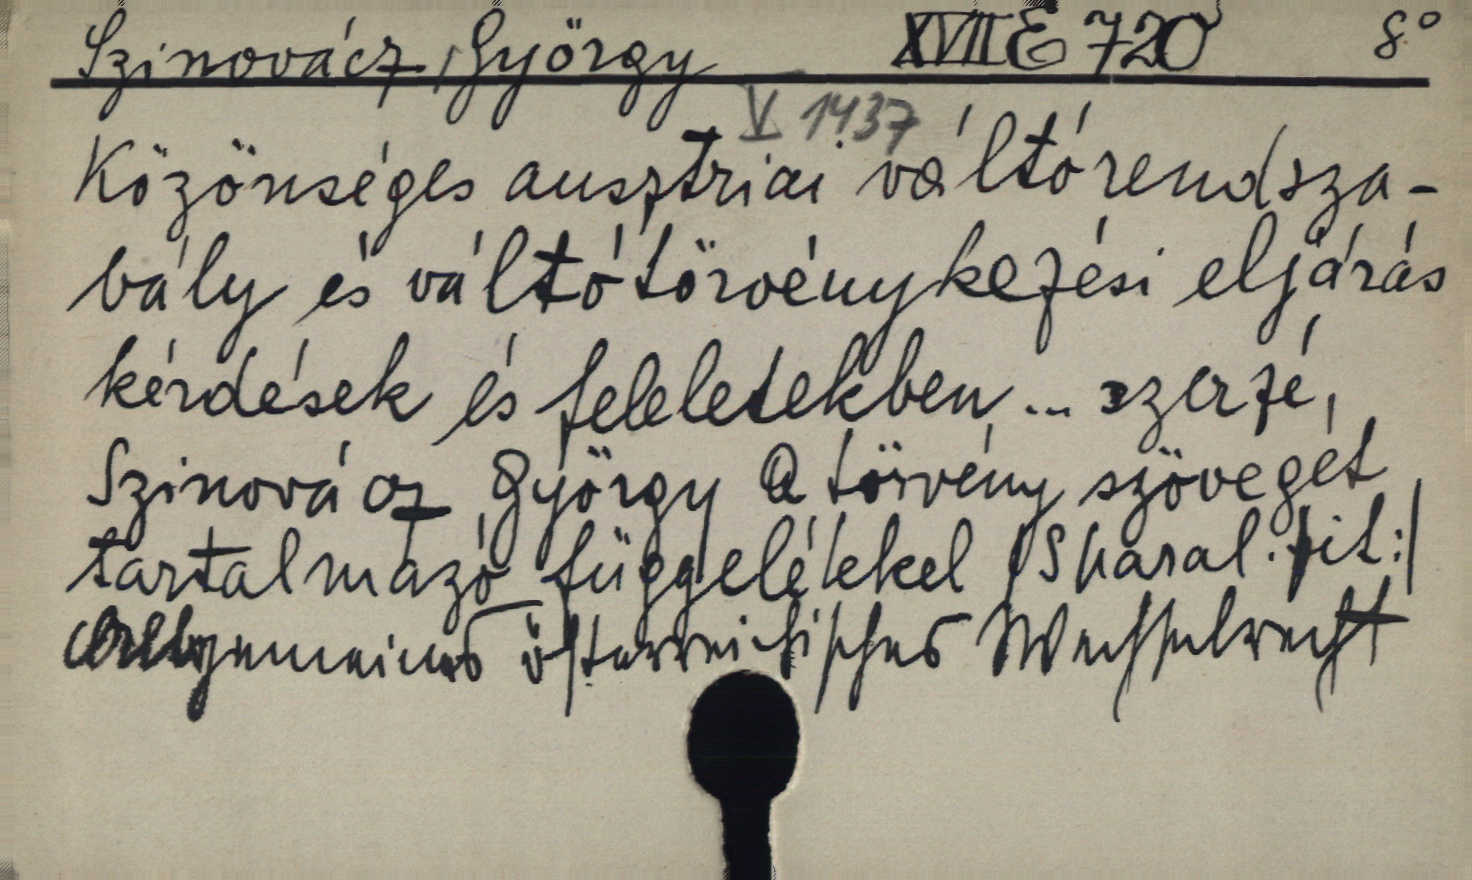 Szinovácz, György XVII E 720 8°
V 1437
Közönséges ausztriai váltórendsza-
bály és váltótörvénykezési eljárás
kérdések és feleletekben ... szerzé,
Szinovácz György a törvény szövegét
tartalmazó függelékekel /: Sharal. tit:/
Allgemeines österreichisches Wechselrecht